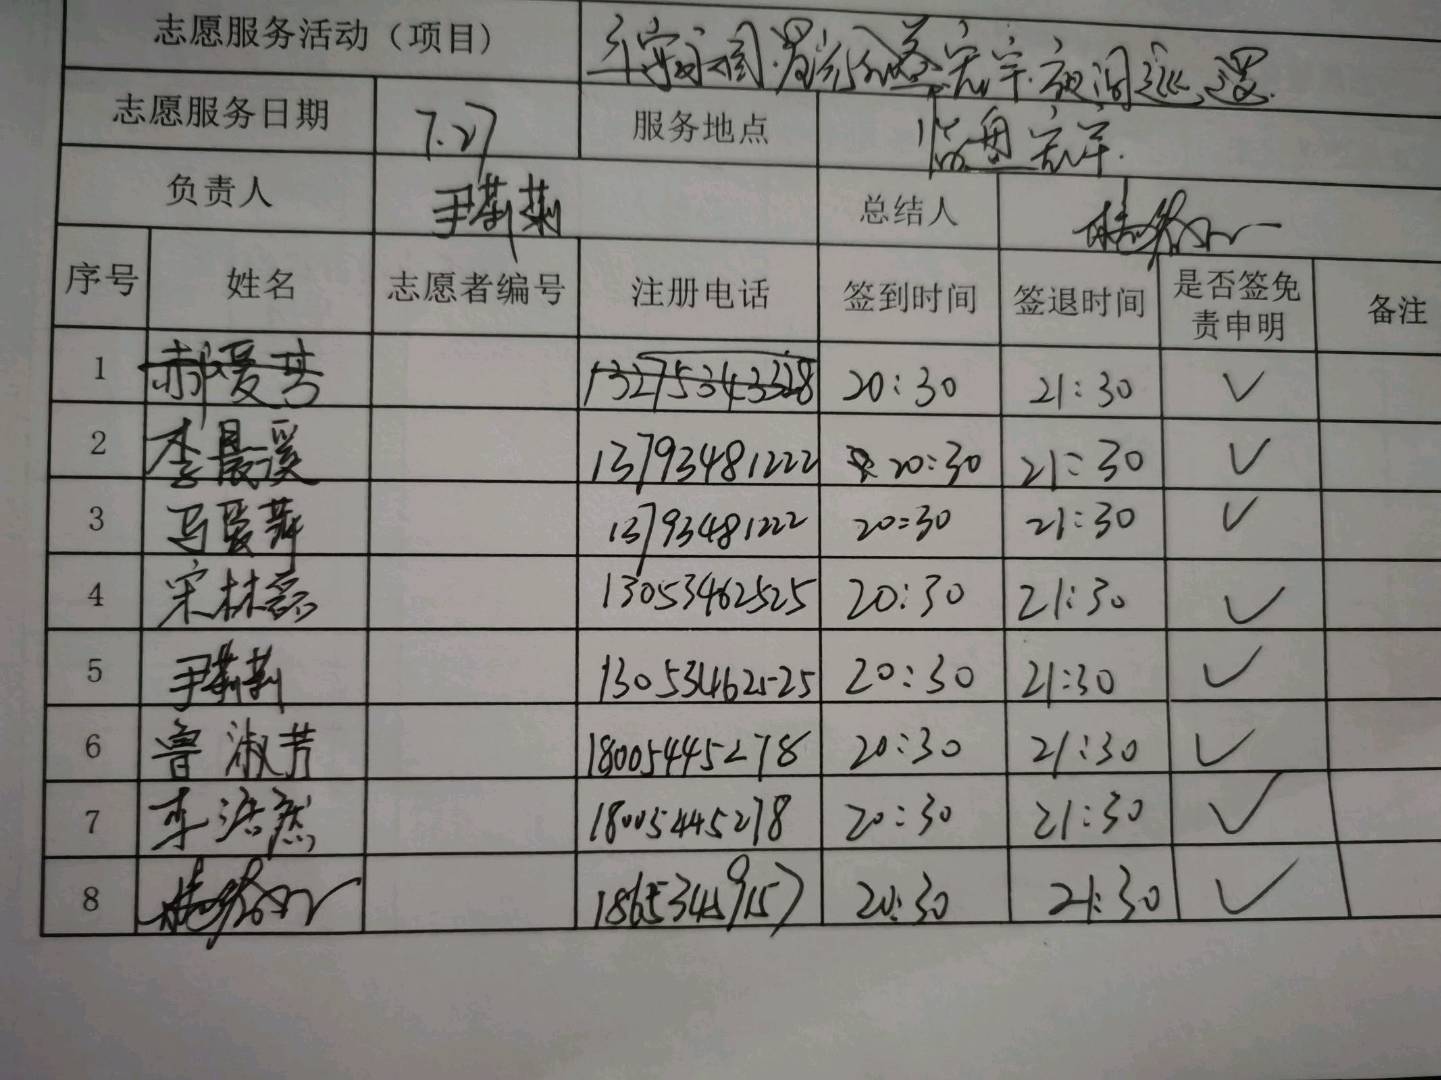 志愿服务活动（项目） 平安临周 夜间巡逻.
志愿服务日期 7.27 服务地点 临盘
负责人 尹莉莉 总结人
序号 姓名 志愿者编号 注册电话 签到时间 签退时间 是否签免责申明 备注
1 郝爱芳 13275343328 20:30 21:30 ✓
2 李晨溪 13793481222 20:30 21:30 ✓
3 马爱莉 13793481222 20:30 21:30 ✓
4 宋林磊 13053462525 20:30 21:30 ✓
5 尹莉莉 13053462525 20:30 21:30 ✓
6 鲁淑芳 18005445278 20:30 21:30 ✓
7 李浩然 18005445278 20:30 21:30 ✓
8 18653459157 20:30 21:30 ✓